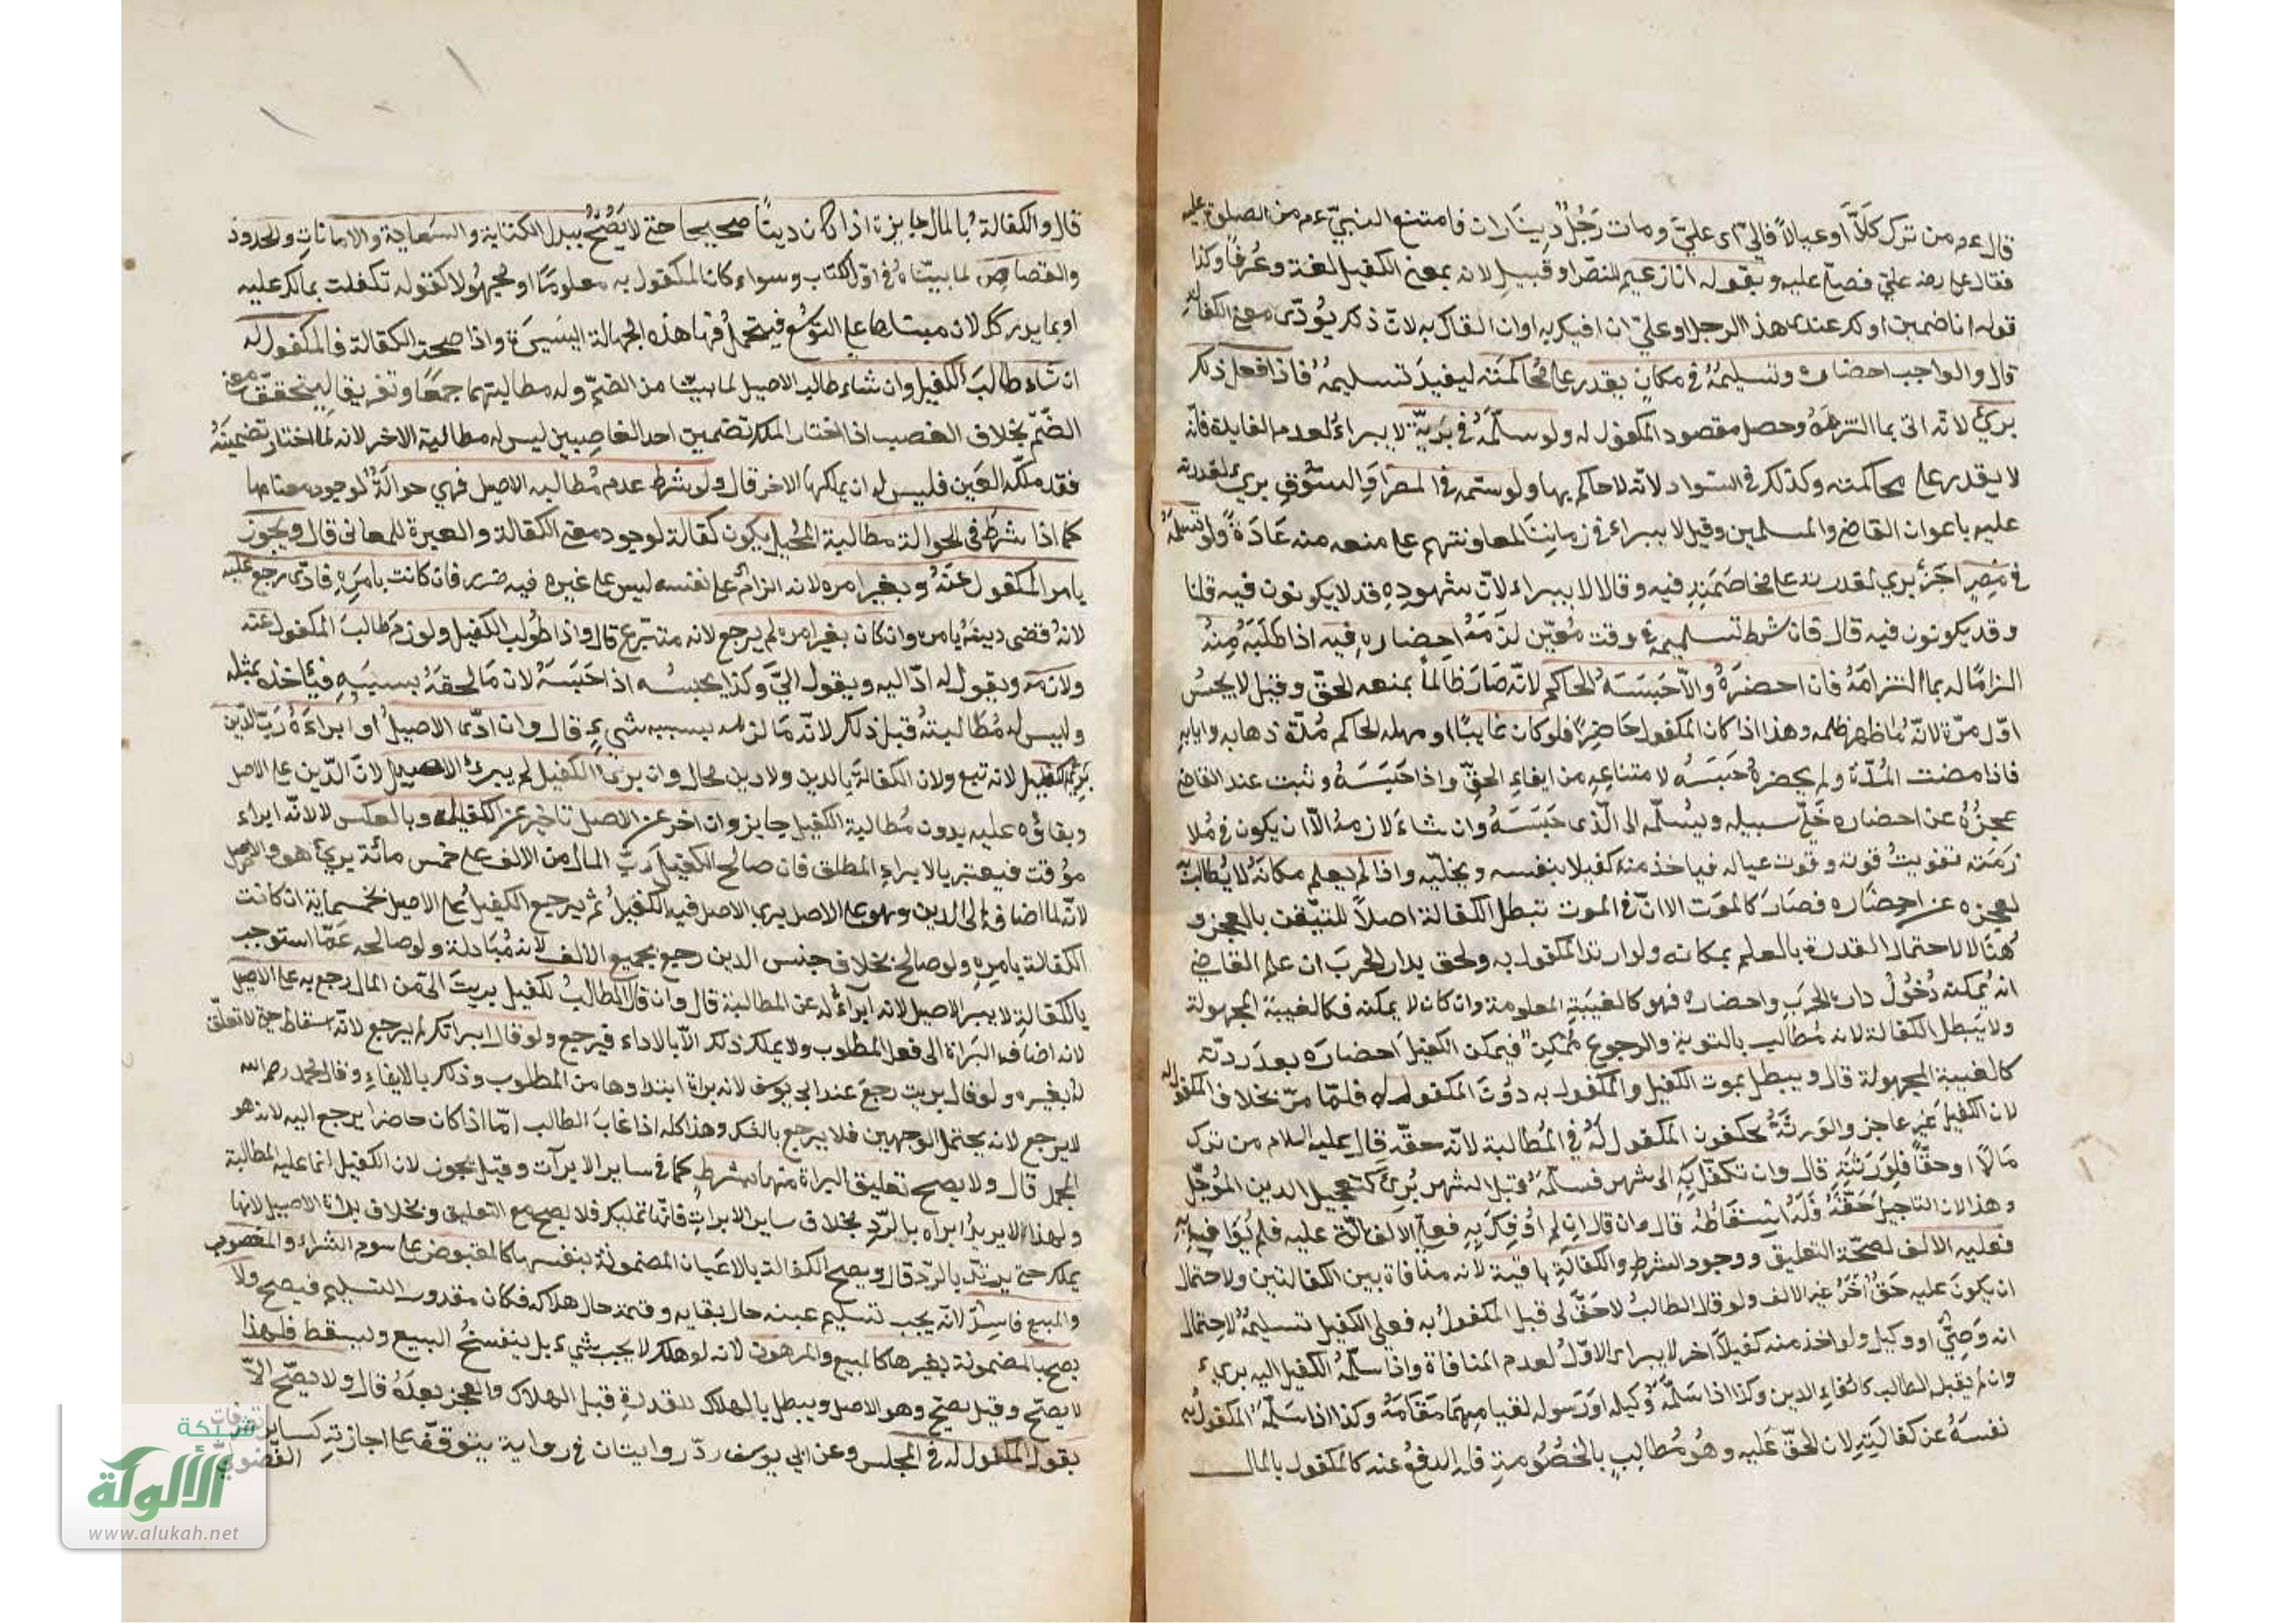 قال عم من ترك كلّاً او عيالاً فاليّ اى عليّ ومات رَجُلٌ وعليه ديناران فامتنع النبيّ عم من الصلوة عليه
فقال على رضه عليّ فصلّى عليه وبقوله انا زعيم للنصّ او قبيل لانه بمعنى الكفيل لغة وعُرفاً وكذا
قوله انا ضمين او لك عندى هذا الرجل او عليّ ان اوفيك به او ان القاك به لانّ ذلك يُؤدّى معنى الكفالة
قال والواجب احضاره وتسليمُهُ فى مكانٍ يقدر على مُحاكَمَته ليفيدَ تسليمهُ فاذا فعل ذلك
برئ لانّه اتى بما التزمَهُ وحصل مقصود المكفول له ولو سلّمَهُ فى بَرِيّةٍ لا يبراءُ لعدم الفايدة فانّه
لا يقدر على محاكمته وكذلك فى السواد لانّه لا حاكم بها ولو سلّمه فى المصر او السوق برئ لقدرته
عليه باعوان القاضى والمسلمين وقيل لا يبراء فى زماننا لمعاونتهم على منعه منه عَادَةً ولو سلّمَهُ
فى مِصرٍ اخَرَ برئ لقدرته على مخاصَمَتِهِ فيه وقالا لا يبراء لانّ شهودِهِ قد لا يكونون فيه قلنا
وقد يكونون فيه قال فان شرط تسليمه فى وقت مُعيّن لزمَهُ احضاره فيه اذا طَلَبَهُ مِنهُ
الزامًا له بما التزامَهُ فان احضرَهُ والّا حَبَسَهُ الحاكم لانّه صَارَ ظالماً بمنعه الحقّ وقيل لا يحبسُ
اوّل مرّة لانّهُ مَا ظهر ظلمه وهذا اذا كان المكفول حَاضِرًا فلو كان غايبًا او مهله الحاكم مُدّة ذهابه وايابه
فاذا مضت المُدّة ولم يحضرهُ حَبَسَهُ لامتناعِهِ من ايفاءِ الحقّ واذا حَبَسَهُ وثبت عند القاضى
عجزُهُ عن احضاره خَلّى سبيله ويُسلّمه الى الّذى حَبَسَهُ وان شاءَ لازمهُ الّا ان يكون فى مُلا
زمَته تفويتُ قوته وقوت عياله فياخذ منه كفيلا بنفسه ويخلّيه واذا لم يعلم مكانَهُ لا يُطالبُ
لعجزه عن احضاره فصَارَ كالمَوت الا انّ فى الموت تبطل الكفالة اصلاً للتيقّن بالعجز و
هُنا لا لاحتمال القدرة بالعلم بمكانه ولو ارتدّ المكفول به ولحق بدار الحرب ان علم القاضى
انه يُمكنه دُخُولُ دار الحَرَب واحضاره فهو كالغيبَةِ المعلومة وان كان لا يمكنه فكالغيبة المجهولة
ولا يبطل الكفالة لانه مُطالب بالتوبة والرجوع مُمكِنٌ فيمكن الكفيل احضارَه بعد ردّته
كالغيبة المجهولة قال ويبطل بموت الكفيل والمكفول به دُونَ المكفول له فلمّا مرّ بخلاف المكفول له
لان الكفيلَ غير عاجز والوَرَثَةُ يحكفون المكفول لَهُ فى المُطالبة لانّه حقّه قال عليه السلام من ترك
مَالًا او حقّاً فلِوَرَثتِهِ قال وان تكفّل بِهِ الى شهرٍ فسلّمَهُ قبل الشهر بُرِئَ كتعجيل الدين المُؤجّل
وهذا لان التاجيل حَقّهُ فَلَهُ اِسْقَاطُهُ قال وان قال ان لم اُوفِكَ بِهِ فعليّ الالف الّتى عليه فلم يُوَافِ به
فعليه الالف لصحّة التعليق ووجود الشرط والكفالة باقية لانه منافاة بين الكفالتين ولاحتمال
ان يكونَ عليه حَقٌ اخَرُ غير الالف ولو قال الطالبُ لا حَقّ لى قبل المكفولُ به فعلى الكفيل تسليمهُ لاحتمال
انه وَصِيٌ او وكيل ولو اخذ منه كفيلاً اخر لا يبراء الاوّل لعدم المنافاة واذا سلّمَهُ الكفيل اليه برئ
وان لم يقبله الطالب كايفاءِ الدين وكذا اذا سَلّمَهُ وكيله او رَسوله لقيامهمَا مَقَامَهُ وكذا اذا سَلّمَ المكفولُ به
نفسَهُ عن كفالتِهِ لان الحقّ عَليه وهُو مُطالبٌ بالخصُومةِ فله الدفعُ عنه كالمكفول بالمال
قال والكفالةُ بالمال جايزة اذا كان دينًا صحيحا حتى لا يَصُحُّ ببدل الكتابة والسعاية والامانات والحدود
والقصاص لما بينّاهُ فى اوّل الكتاب وسواء كان المكفول به معلومًا او مجهُولا كقوله تكفلت بمالك عليه
او بما يدرك لان مبناها على التوسّع فيتحملُ فيها هذه الجهالة اليسَيرَة واذا صحت الكفالة فالمكفول له
ان شاء طالبَ الكفيل وان شاء طالب الاصيل لما بينّا من الضمّ وله مطالبتهما جمعًا وتفريقا ليتحقق معنى
الضّمّ بخلاف الغصب اذا اختار الملك تضمين احد الغاصبين ليس له مطالبة الاخر لانه لما اختار تضمينَهُ
فقد ملّكه العَين فليس له ان يملكها الاخر قال ولو شرط عدم مُطالبه الاصيل فهي حوالَةٌ لوجود معناها
كما اذا شرط فى الحوالة مطالبة المُحيل يكون كفالة لوجود معنى الكفالة والعبرة للمعانى قال ويجوز
بامر المكفول عَنهُ وبغير امره لانه الزامٌ على نفسه ليس على غيره فيه ضرر فان كانت بامرِهِ فادّى رجع عليه
لانهُ قضى دينَهُ بامره وان كان بغير امره لم يرجع لانه متبّرع قال واذا طُولب الكفيل ولوزم طالب المكفول عنه
ولازمه ويقول له ادّ اليه ويقول اليَّ وكذا يحبسُه اذا حَبَسَهُ لان مَا لحقهُ بسببِهِ فيأخذه بمثله
وليس له مُطالبتهُ قبل ذلك لانّه مَا لزمه بسببه شيءٍ قال وان ادّى الاصيلُ او ابراءَهُ رَبُ الدّين
بَرِئ الكفيل لانه تبع ولان الكفالة بالدين ولا دين محال وان برئ الكفيل لم يبرئ الاصيل لانّ الدّين على الاصل
وبقاؤه عليه بدون مُطالبة الكفيل جايز وان اخر عن الاصل تاخير عن الكفيل وبالعكس لا لانّه ابراء
مؤقت فيعتبر بالابراء المطلق فان صالح الكفيل رَبّ المال من الالف على خمس مائة برئ هو والاصيل
لانّه لما اضافه الى الدين وهو على الاصل يبرا الاصل فيبرا الكفيلُ ثم يرجع الكفيل على الاصيل بخمسماية ان كانت
الكفالة بامرِهِ ولو صالح بخلاف جنس الدين رجع بجميع الالف لانه مُبَادلة ولو صالحه عَمّا استوجب
بالكفالة لا يبرا الاصيل لانه ابراءٌ له عن المطالبة قال وان قال الطالبُ لكفيل بريتَ الىّ من المال رجع به على الاصيل
لانه اضافه البَراة الى فعل المطلوب ولا يملك ذلك الّا بالاداء فيرجع ولو قال ابراتك لم يرجع لانّه اسقاط حق لا تعلّق
له بغيره ولو قال بريت رجعَ عند ابى يوسف لانه براة ابتداوها من المطلوب وذلك بالايفاءِ وقال محمد رحمه الله
لا يرجع لانه يحتمل الوجهين فلا يرجع بالشك وهذا كله اذا غابَ الطالب امّا اذا كان حاضرا يرجع اليه لانه هو
المجمل قال ولا يصح تعليق البراة منها بشرطٍ كما فى ساير الابرآت وقيل يجوز لان الكفيل انما عليه المطالبة
ولهذا لا يريدُ ابراه بالرّدِ بخلاف ساير الابراتِ فانّها تمليك فلا يصح مع التعليق وبخلاف براءة الاصيل لانها
يملك حتى يرتدّ بالرّد قال ويصح الكفالة بالاعَيان المضمونة بنفسها كالمقبوض على سوم الشراء والمغصوب
والمبيع فاسِدًا لانّه يجب تسليم عينه حال بقايه وقيمته حال هلاكه فكان مقدور التسليم فيصح ولا
يصح بالمضمونة بغيرها كالمبيع والمرهون لانه لو هلك لا يجب شيء بل ينفسخُ البيع ويسقط فلهذا
لا يصحّ وقيل يصحّ وهو الاصل ويبطل بالهلاك للقدرةِ قبل الهلاك والعجز بعدَهُ قال ولا يصّح الّا
بقول المكفول له فى المجلس وعن ابى يوسف ردّ روايتان فى رواية يتوقّف على اجازتهِ كساير تصرفات
الفضوليّ
شبكة
الألوكة
www.alukah.net